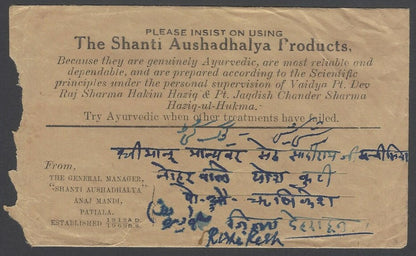 PLEASE INSIST ON USING
The Shanti Aushadhalya Products,
Because they are genuinely Ayurvedic, are most reliable and
dependable, and are prepared according to the Scientific
principles under the personal supervision of Vaidya Pt. Dev
Raj Sharma Hakim Haziq & Pt. Jagdish Chander Sharma
Haziq-ul-Hukma.
Try Ayurvedic when other treatments have failed.
श्रीमान् मान्यवर सेठ
नाहर वाले पास कुटी
पो० ऋषिकेश
जिला देहरादून
Rishikesh
From,
THE GENERAL MANAGER,
"SHANTI AUSHADHALYA"
ANAJ MANDI,
PATIALA.
ESTABLISHED